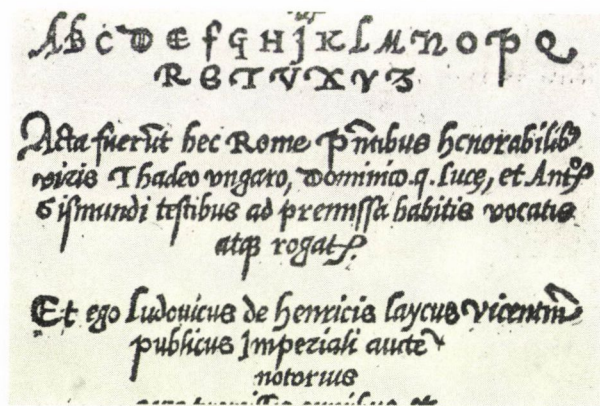 A B C D E F G H J K L M N O P Q
R S T V X Y Z
Acta fuerūt hec Rome p̄ntibus honorabilibꝫ
viris Thadeo vngaro, Dominico. q. Luce, et Antᵒ
Sismundi testibus ad premissa habitis vocatis
atqꝫ rogatꝭ
Et ego Ludovicus de henricis laycus vicentin̄
publicus Imperiali aucte
notorius